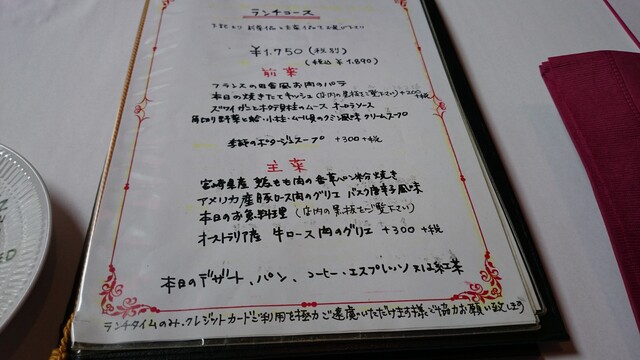 ランチコース
下記より 前菜1品と主菜1品をお選び下さい
¥1.750 (税別)
(税込 ¥1.890)
前菜
フランスの田舎風お肉のパテ
本日の焼きたてキッシュ (店内の黒板をご覧下さい) +200+税
ズワイガニとホタテ貝柱のムース オーロラソース
角切り野菜と蛤・小柱・ムール貝のクミン風味 クリームスープ
季節のポタージュスープ +300+税
主菜
宮崎県産 鶏もも肉の香草パン粉焼き
アメリカ産豚ロース肉のグリエ バスク唐辛子風味
本日のお魚料理 (店内の黒板をご覧下さい)
オーストラリア産 牛ロース肉のグリエ +300 +税
本日のデザート、パン、コーヒー・エスプレッソ又は紅茶
ランチタイムのみ、クレジットカードご利用を極力ご遠慮いただけます様、ご協力お願い致します